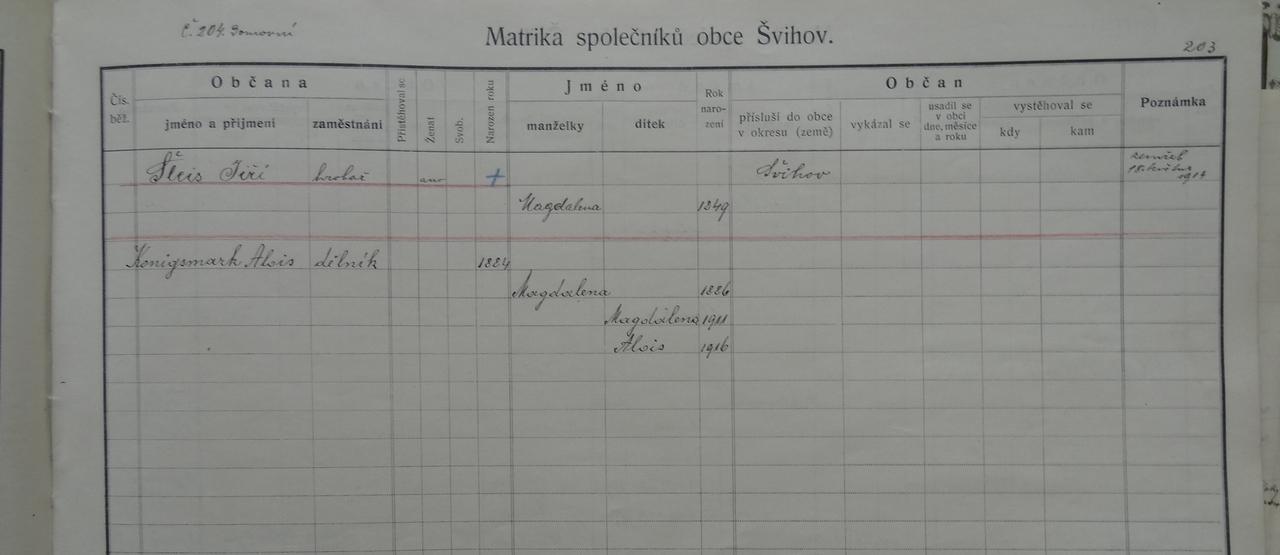 č 204. Domovní
Matrika společníků obce Švihov.
203
Čís. běž.
Občana
jméno a příjmení
zaměstnání
Přistěhoval se
Ženat
Svob.
Narozen roku
Jméno
manželky
dítek
Rok naro- zení
Občan
přísluší do obce v okresu (země)
vykázal se
usadil se v obci dne, měsíce a roku
vystěhoval se
kdy
kam
Poznámka
Šleis Jiří hrobař ano + Švihov zemřel
18. května
1914
Magdalena 1849
Königsmark Alois dělník 1884
Magdalena 1886
Magdalena 1911
Alois 1916